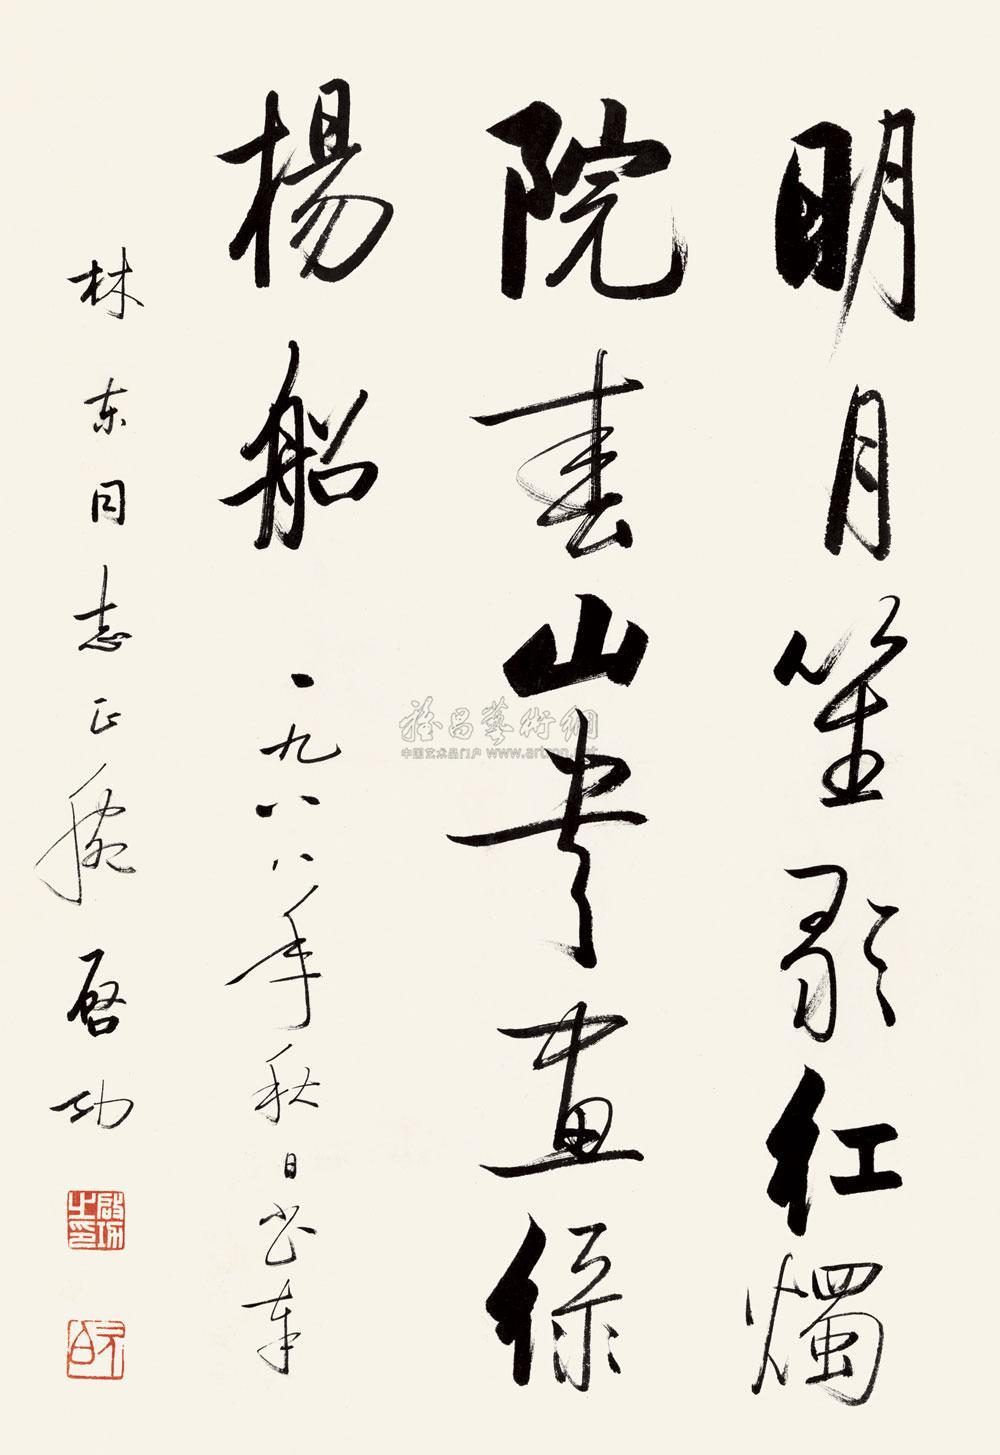 明月笙歌紅燭
院春山書畫緑
楊船 一九八八年秋日书奉
林东同志正腕 启功
啟功之印
元白
雅昌藝術網
中国艺术品门户 www.artron.net